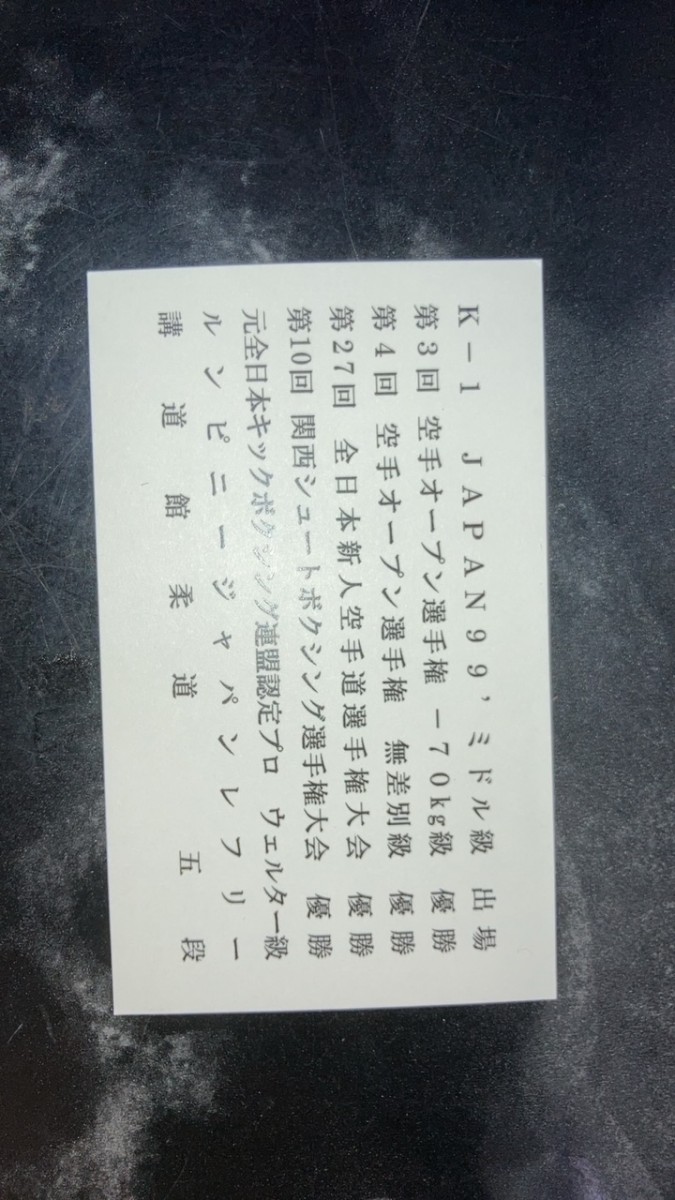 K－1 JAPAN99’ミドル級 出場
第3回 空手オープン選手権 －70kg級 優勝
第4回 空手オープン選手権 無差別級 優勝
第27回 全日本新人空手道選手権大会 優勝
第10回 関西シュートボクシング選手権大会 優勝
元全日本キックボクシング連盟認定プロ ウェルター級
ルンピニージャパンレフリー
講道館柔道 五段